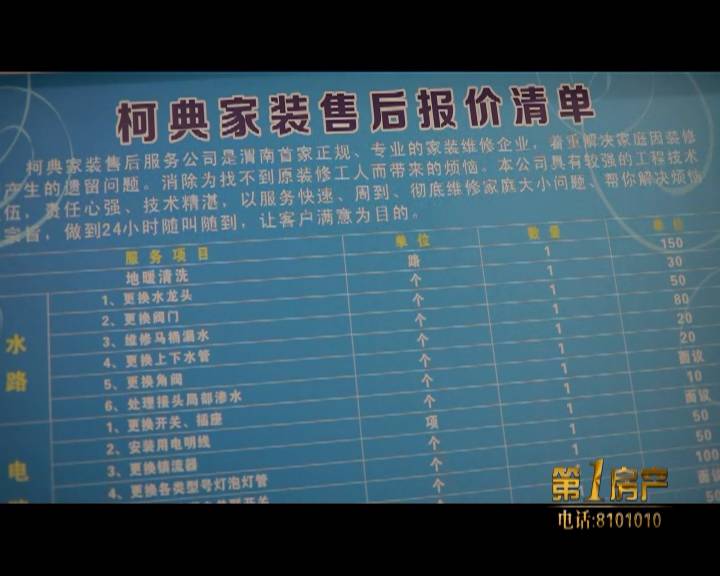 柯典家装售后报价清单
柯典家装售后服务公司是渭南首家正规、专业的家装维修企业，着重解决家庭因装修
产生的遗留问题。消除为找不到原装修工人而带来的烦恼。本公司具有较强的工程技术
伍，责任心强、技术精湛，以服务快速、周到、彻底维修家庭大小问题、帮你解决烦恼
宗旨，做到24小时随叫随到，让客户满意为目的。
服务项目 单位 数量
地暖清洗 路 1 150
水路
1、更换水龙头 个 1 30
2、更换阀门 个 1 50
3、维修马桶漏水 个 1 80
4、更换上下水管 个 1 20
5、更换角阀 个 1 20
6、处理接头局部渗水 个 1 面议
电
1、更换开关、插座 个 1 10
2、安装用电明线 项 1 面议
3、更换镇流器 个 1 50
4、更换各类型号灯泡灯管 个 1 100
第1房产
电话:8101010